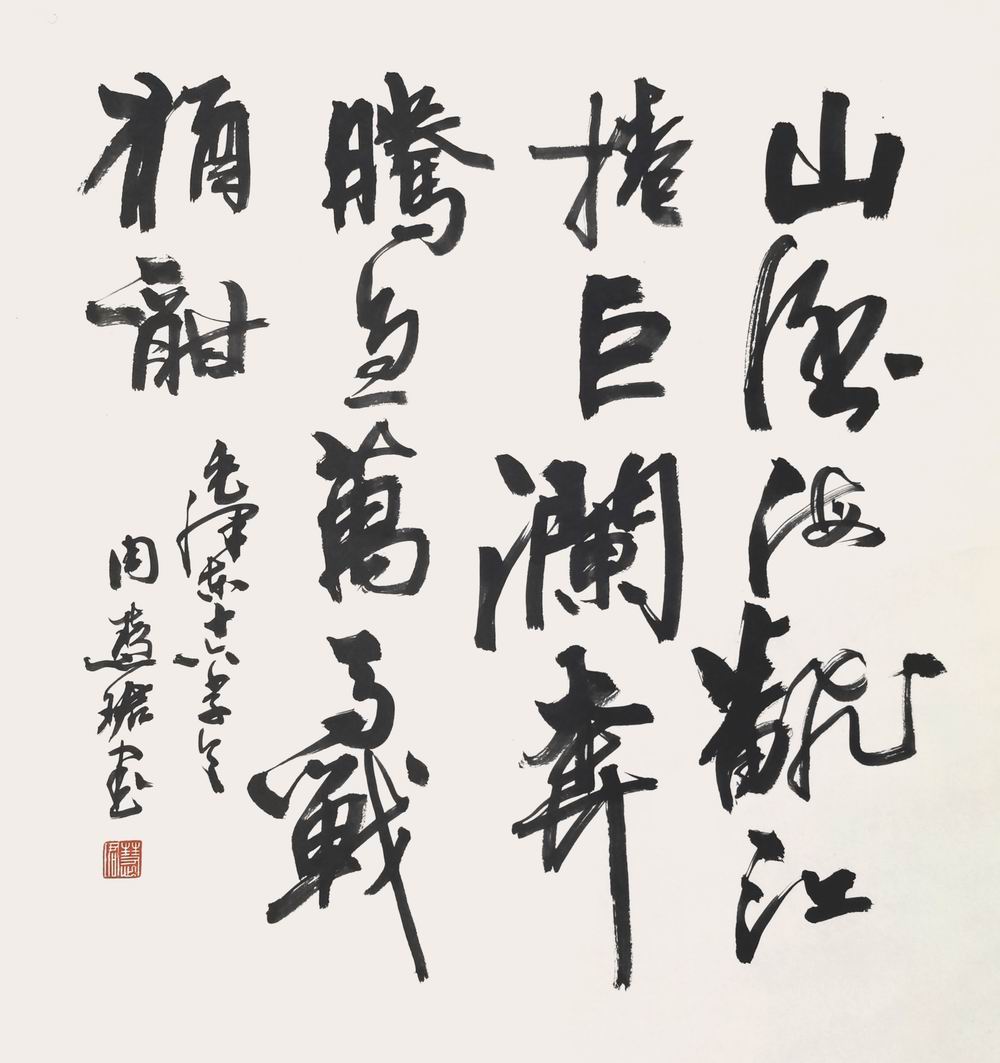 山倒海飜江
捲巨瀾奔
騰急萬馬戰
猶酣
毛澤東十六字令
周慧珺書